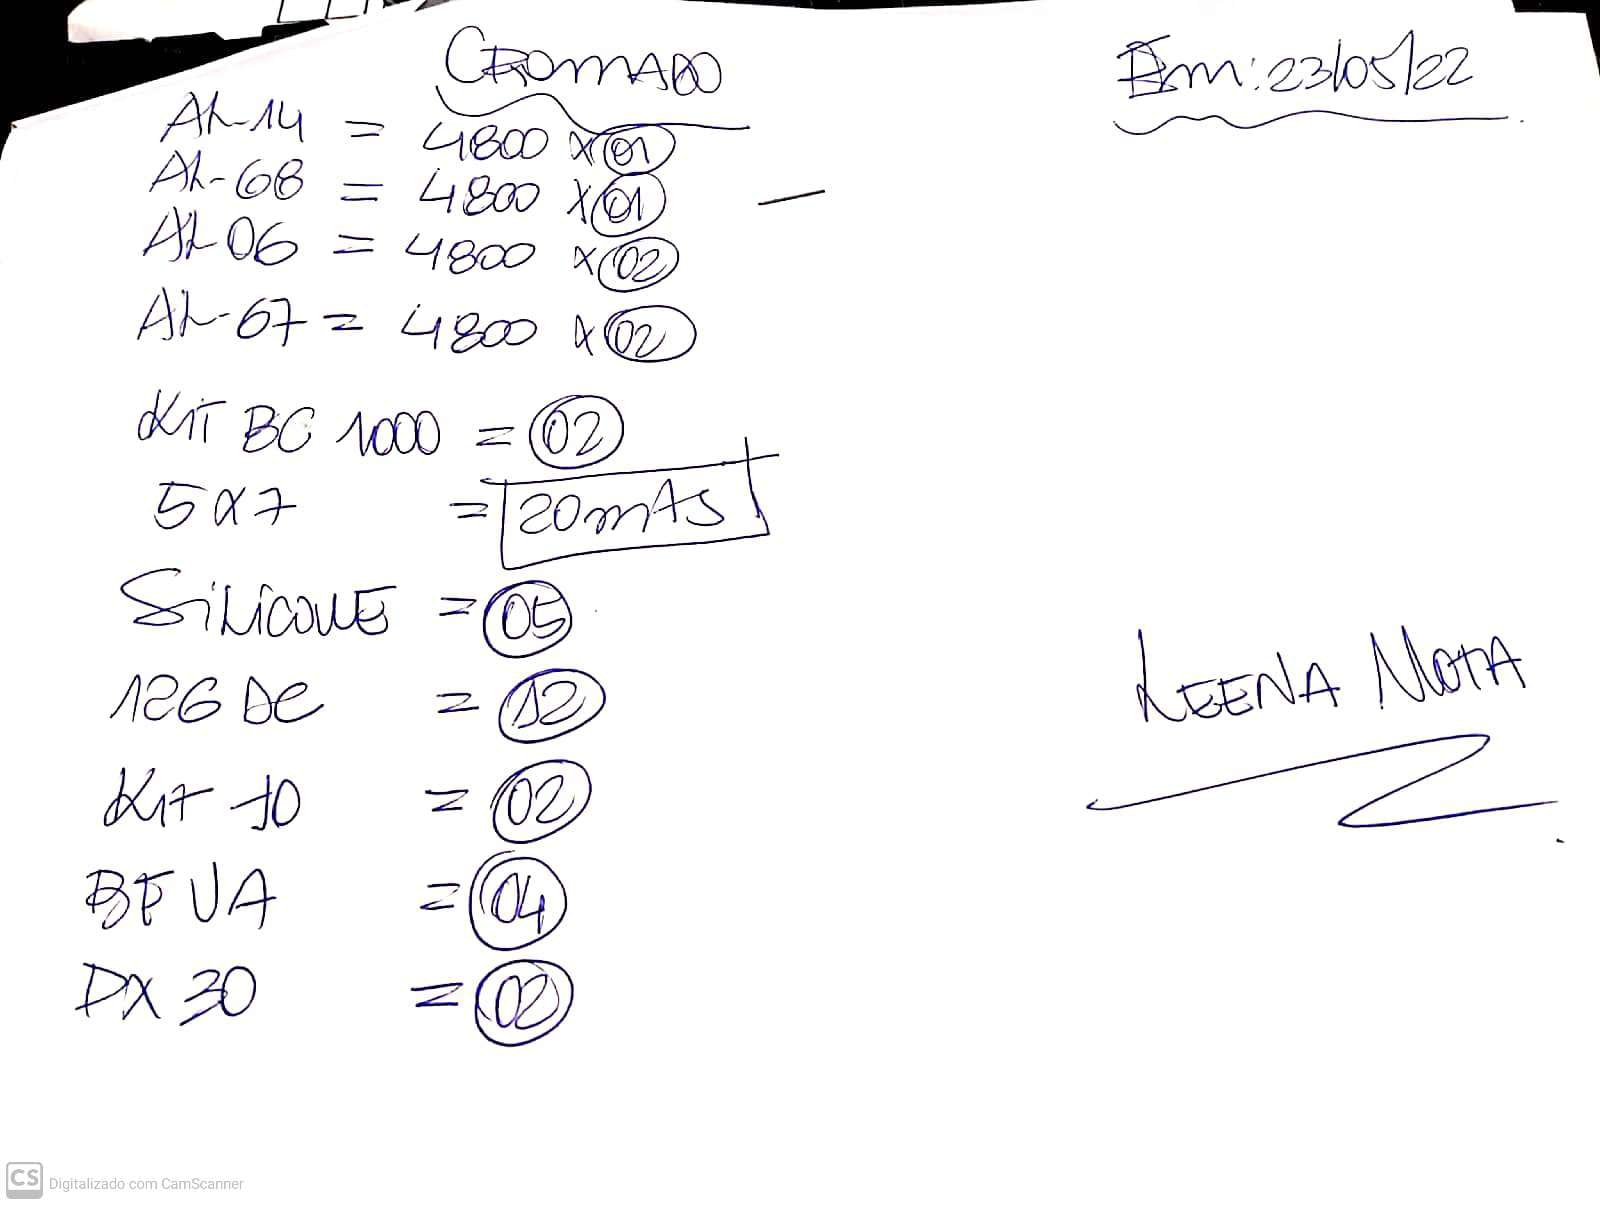 CROMADO
Em: 23/05/22
AL-14 = 4800 x 01
AL-68 = 4800 x 01
AL-06 = 4800 x 02
AL-67 = 4800 x 02
KIT BC 1000 = 02
5x7 = 20mts
SILICONE = 05
126 DE = 12
KIT 10 = 02
BF VA = 04
DX 30 = 02
LEENA MOTA
CS Digitalizado com CamScanner